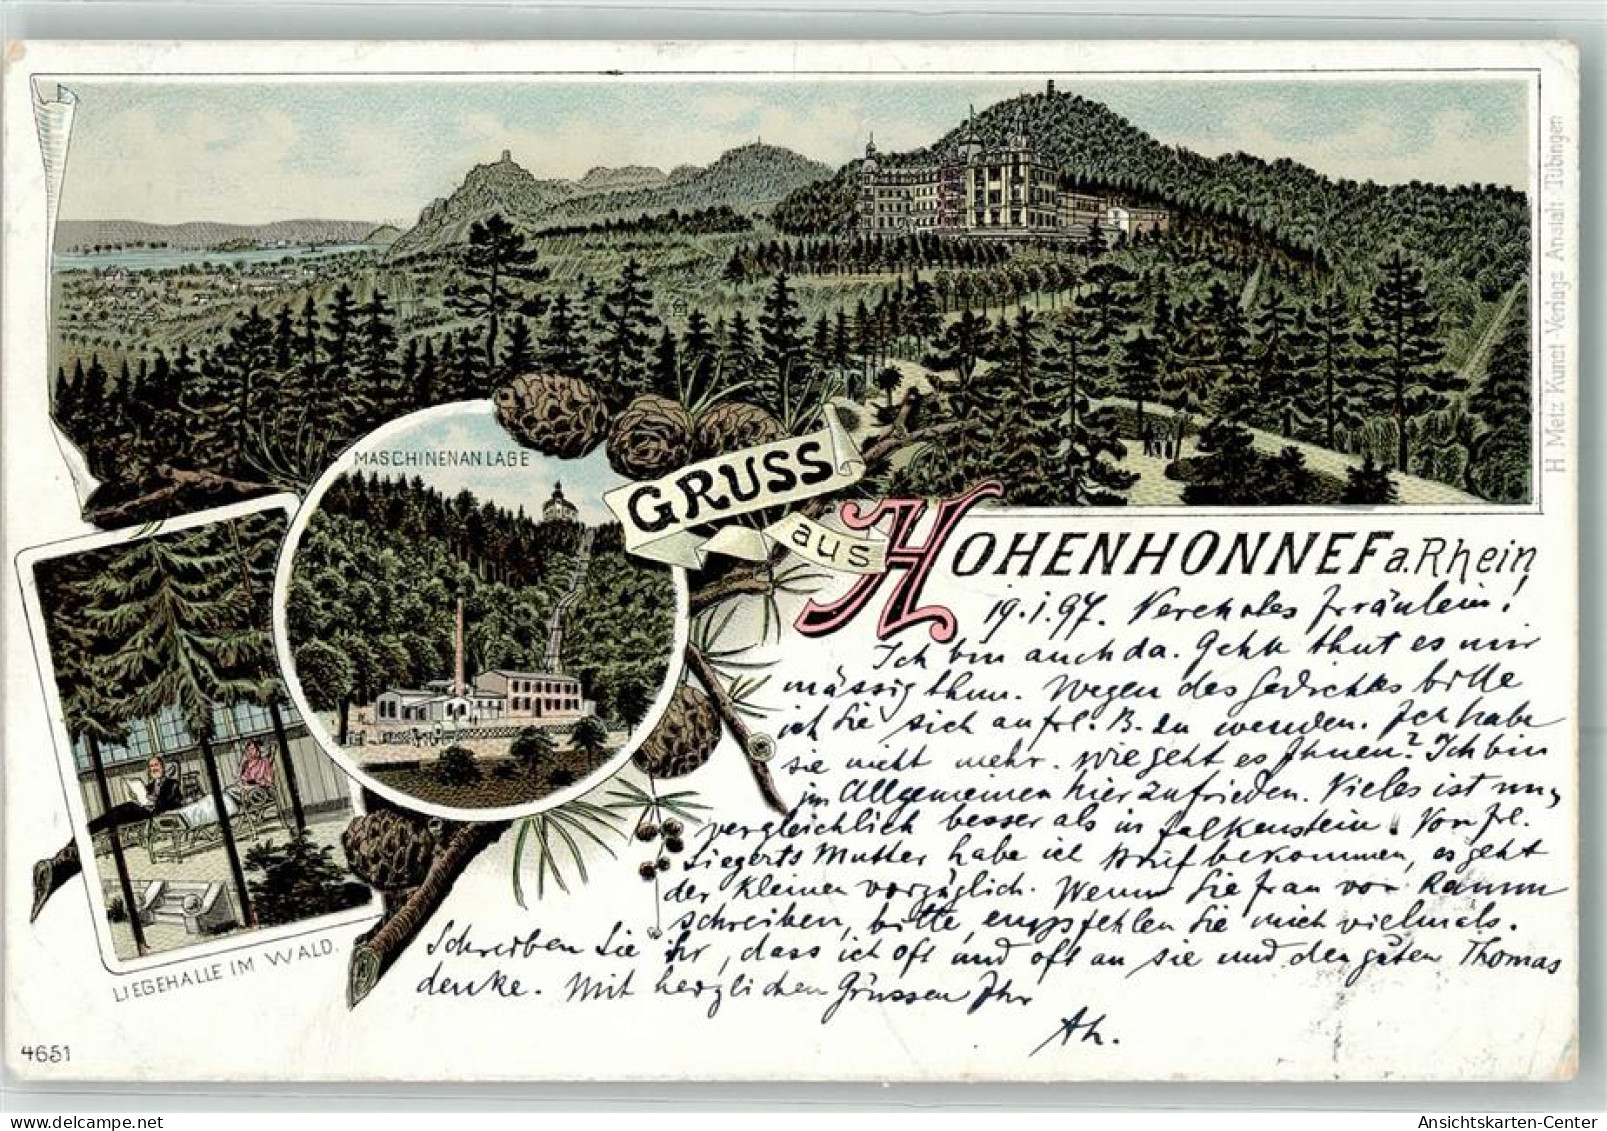 H Metz Kunst Verlags Anstalt Tübingen
MASCHINENANLAGE
GRUSS
aus
HOHENHONNEF a. Rhein
19.I.97. Verehrtes Fräulein!
Ich bin auch da. Gehen thut es mir
mässig thun. Wegen des Gedichtes bitte
ich Sie sich an Frl. B. zu wenden. Ich habe
sie nicht mehr. Wie geht es Ihnen? Ich bin
im Allgemeinen hier zufrieden. Vieles ist un-
vergleichlich besser als in Falkenstein. Von Frl.
Siegerts Mutter habe ich Brief bekommen, es geht
der Kleinen vorzüglich. Wenn Sie Frau von
schreiben, bitte, empfehlen Sie mich vielmals.
Schreiben Sie ihr, dass ich oft und oft an sie und den guten Thomas
denke. Mit herzlichen Grüssen Ihr
Ah.
LIEGEHALLE IM WALD.
4651
Ansichtskarten-Center